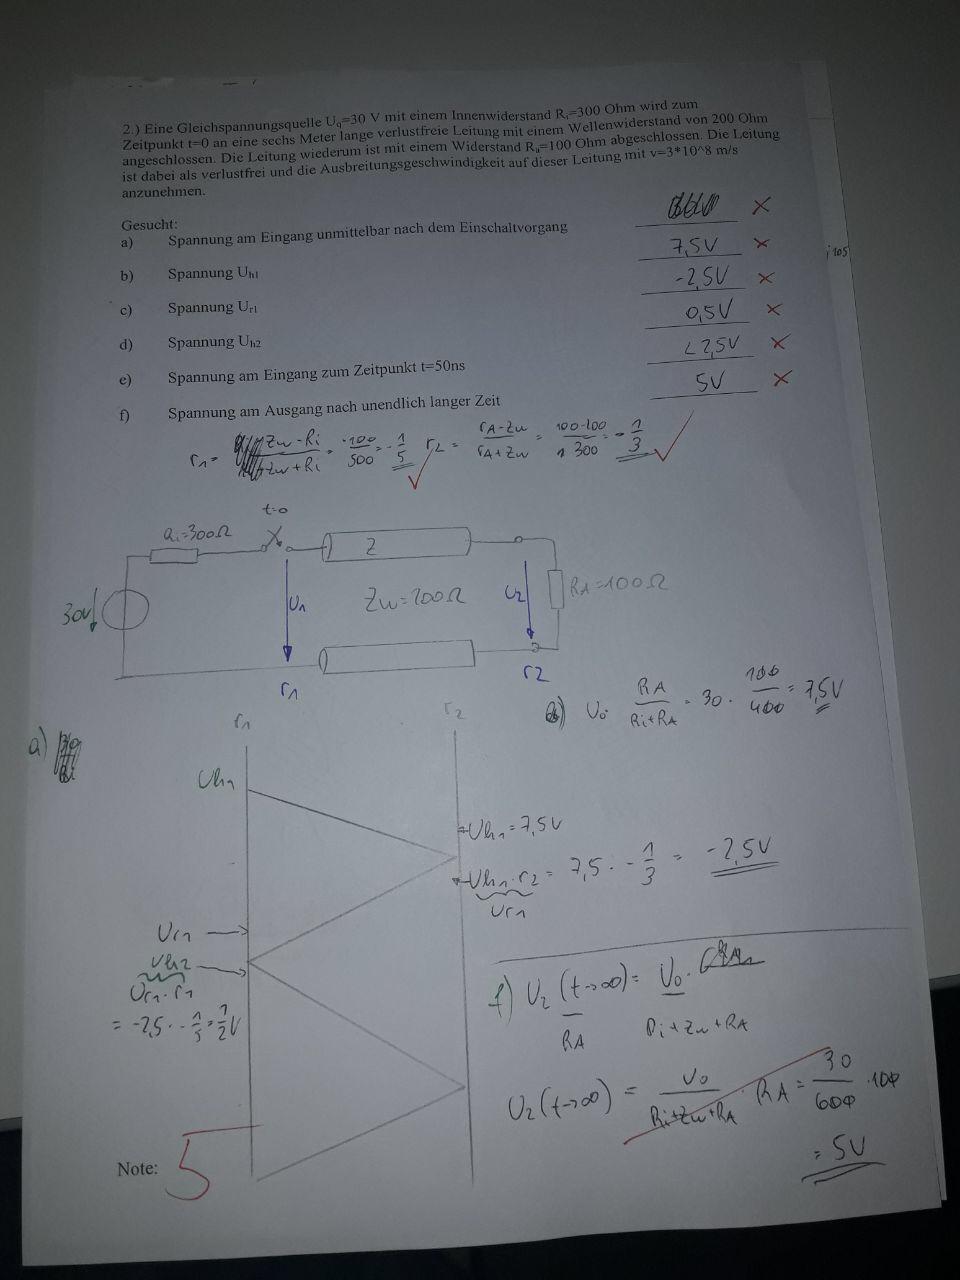 2.) Eine Gleichspannungsquelle Uq=30 V mit einem Innenwiderstand Ri=300 Ohm wird zum
Zeitpunkt t=0 an eine sechs Meter lange verlustfreie Leitung mit einem Wellenwiderstand von 200 Ohm
angeschlossen. Die Leitung wiederum ist mit einem Widerstand Ra=100 Ohm abgeschlossen. Die Leitung
ist dabei als verlustfrei und die Ausbreitungsgeschwindigkeit auf dieser Leitung mit v=3*10^8 m/s
anzunehmen.
Gesucht:
a) Spannung am Eingang unmittelbar nach dem Einschaltvorgang
b) Spannung Uh1 7,5V
c) Spannung Ur1 -2,5V
d) Spannung Uh2 0,5V
e) Spannung am Eingang zum Zeitpunkt t=50ns <2,5V
f) Spannung am Ausgang nach unendlich langer Zeit 5V
r1 = Zw-Ri / Zw+Ri = -100/500 = -1/5 r2 = rA-Zw / rA+Zw = 100-200 / 300 = -1/3
t=0
Ri=300Ω
Z
30V
U1
Zw=200Ω
U2
RA=100Ω
r1
r2
b) U0 · RA / Ri+RA = 30 · 100/400 = 7,5V
r1
r2
a)
Uh1
Uh1 = 7,5V
Uh1 · r2 = 7,5 · -1/3 = -2,5V
Ur1
Ur1
Uh2
Ur1 · r1
= -2,5 · -1/5 = 1/2 V
f) U2 (t→∞) = U0 ·
RA Ri+Zw+RA
U2 (t→∞) = U0 / Ri+Zw+RA · RA = 30/600 · 100
= 5V
Note: 5